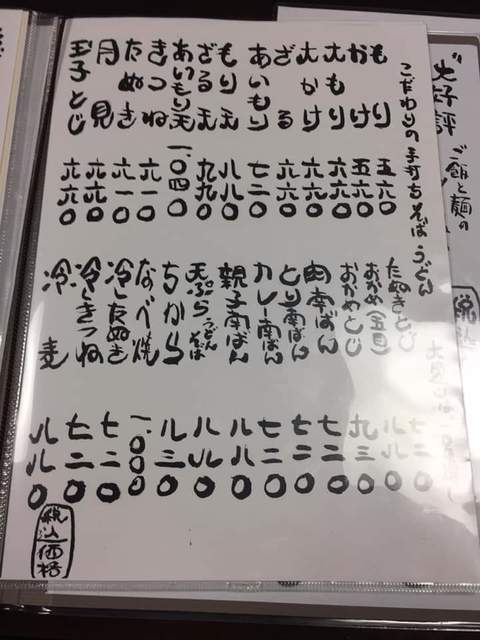 こだわりの手打ちそばうどん
もり 五六〇
かけ 五六〇
大もり 六六〇
大かけ 六六〇
ざる 六六〇
あいもり 七二〇
もり天 八八〇
ざる天 九九〇
あいもり天 一、〇四〇
きつね 六一〇
たぬき 六一〇
月見 六六〇
玉子とじ 六六〇
たぬきとじ 七二〇
おかめ(五目) 八八〇
おかめとじ 九三〇
肉南ばん 七二〇
とり南ばん 七二〇
カレー南ばん 七二〇
親子南ばん 八八〇
天ぷらうどんそば 八八〇
ちから 八三〇
なべ焼 一、〇〇〇
冷したぬき 七二〇
冷しきつね 七二〇
冷麦 八八〇
税込価格
大好評
ご飯と麺の
税込